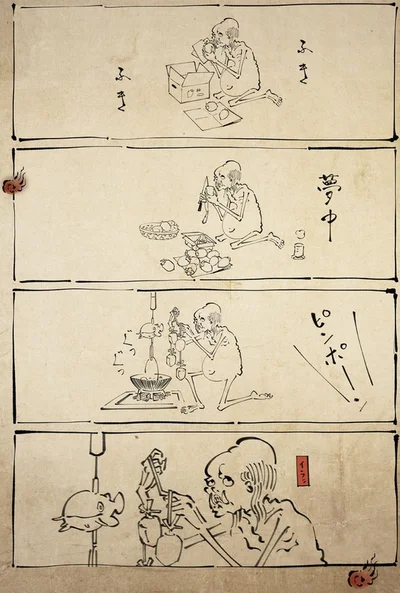 ふき
ふき
夢中
ピンポーン
ぐつ
ぐつ